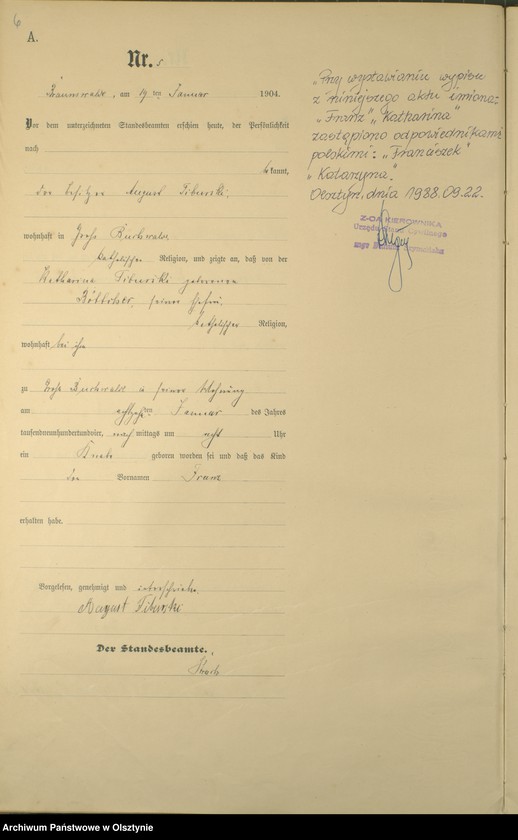 6
A.
Nr. 5
Braunswalde, am 19 ten Januar 1904.
Vor dem unterzeichneten Standesbeamten erschien heute, der Persönlichkeit
nach
kannt,
der Besitzer August Tiburski,
wohnhaft in Groß Buchwalde
katholischer Religion, und zeigte an, daß von der
Katharina Tiburski geborenen
seiner Ehefrau,
katholischer Religion,
wohnhaft bei ihm
zu Groß Buchwalde in seiner Wohnung
am achtzehnten Januar des Jahres
tausendneunhundertundvier, nachmittags um acht Uhr
ein Knabe geboren worden sei und daß das Kind
den Vornamen Franz
erhalten habe.
Vorgelesen, genehmigt und unterschrieben.
August Tiburski
Der Standesbeamte.
„Przy wystawianiu wypisu
z niniejszego aktu imiona:
„Franz" „Katharina"
zastąpiono odpowiednikami
polskimi: „Franciszek"
„Katarzyna".
Olsztyn, dnia 1988.09.22.
Z-CA KIEROWNIKA
Urzędu Stanu Cywilnego
mgr
Archiwum Państwowe w Olsztynie